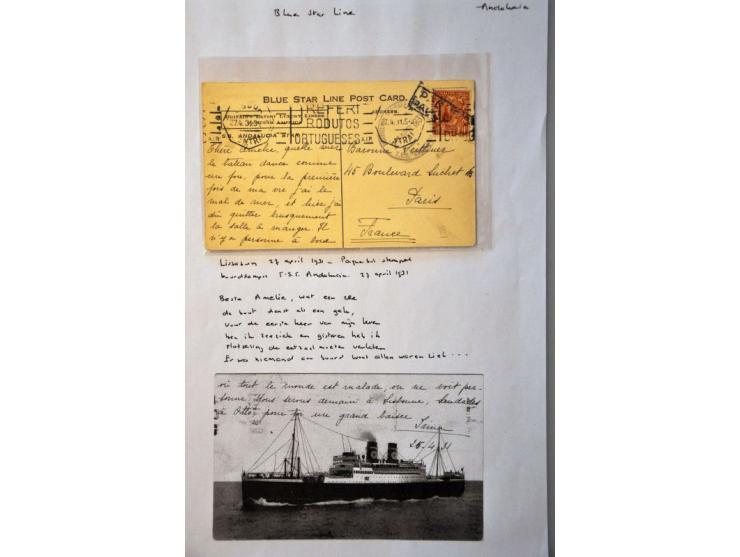 Blue Star Line
Andalucia
BLUE STAR LINE POST CARD.
PREFERI
PRODUTOS
PORTUGUESES
S.S. ANDALUCIA STAR
27.4.31
Chère Amélie, quelle mer
le bateau danse comme
un fou, pour la première
fois de ma vie j'ai le
mal de mer, et hier j'ai
dû quitter brusquement
la salle à manger. Il
n'y a personne à bord
Baronne
45 Boulevard Suchet
Paris
France
Lissabon 27 april 1931 - Paquebot stempel
boordstempel T.S.S. Andalucia 27 april 1931
Beste Amelie, wat een zee
de boot danst als een gek,
voor de eerste keer van mijn leven
ben ik zeeziek en gisteren heb ik
plotseling de eetzaal moeten verlaten
Er was niemand aan boord want allen waren ziek ...
où tout le monde est malade, on ne voit per-
sonne. Nous serons demain à Lisbonne,
à Otto, pour toi une grand baiser
25.4.31